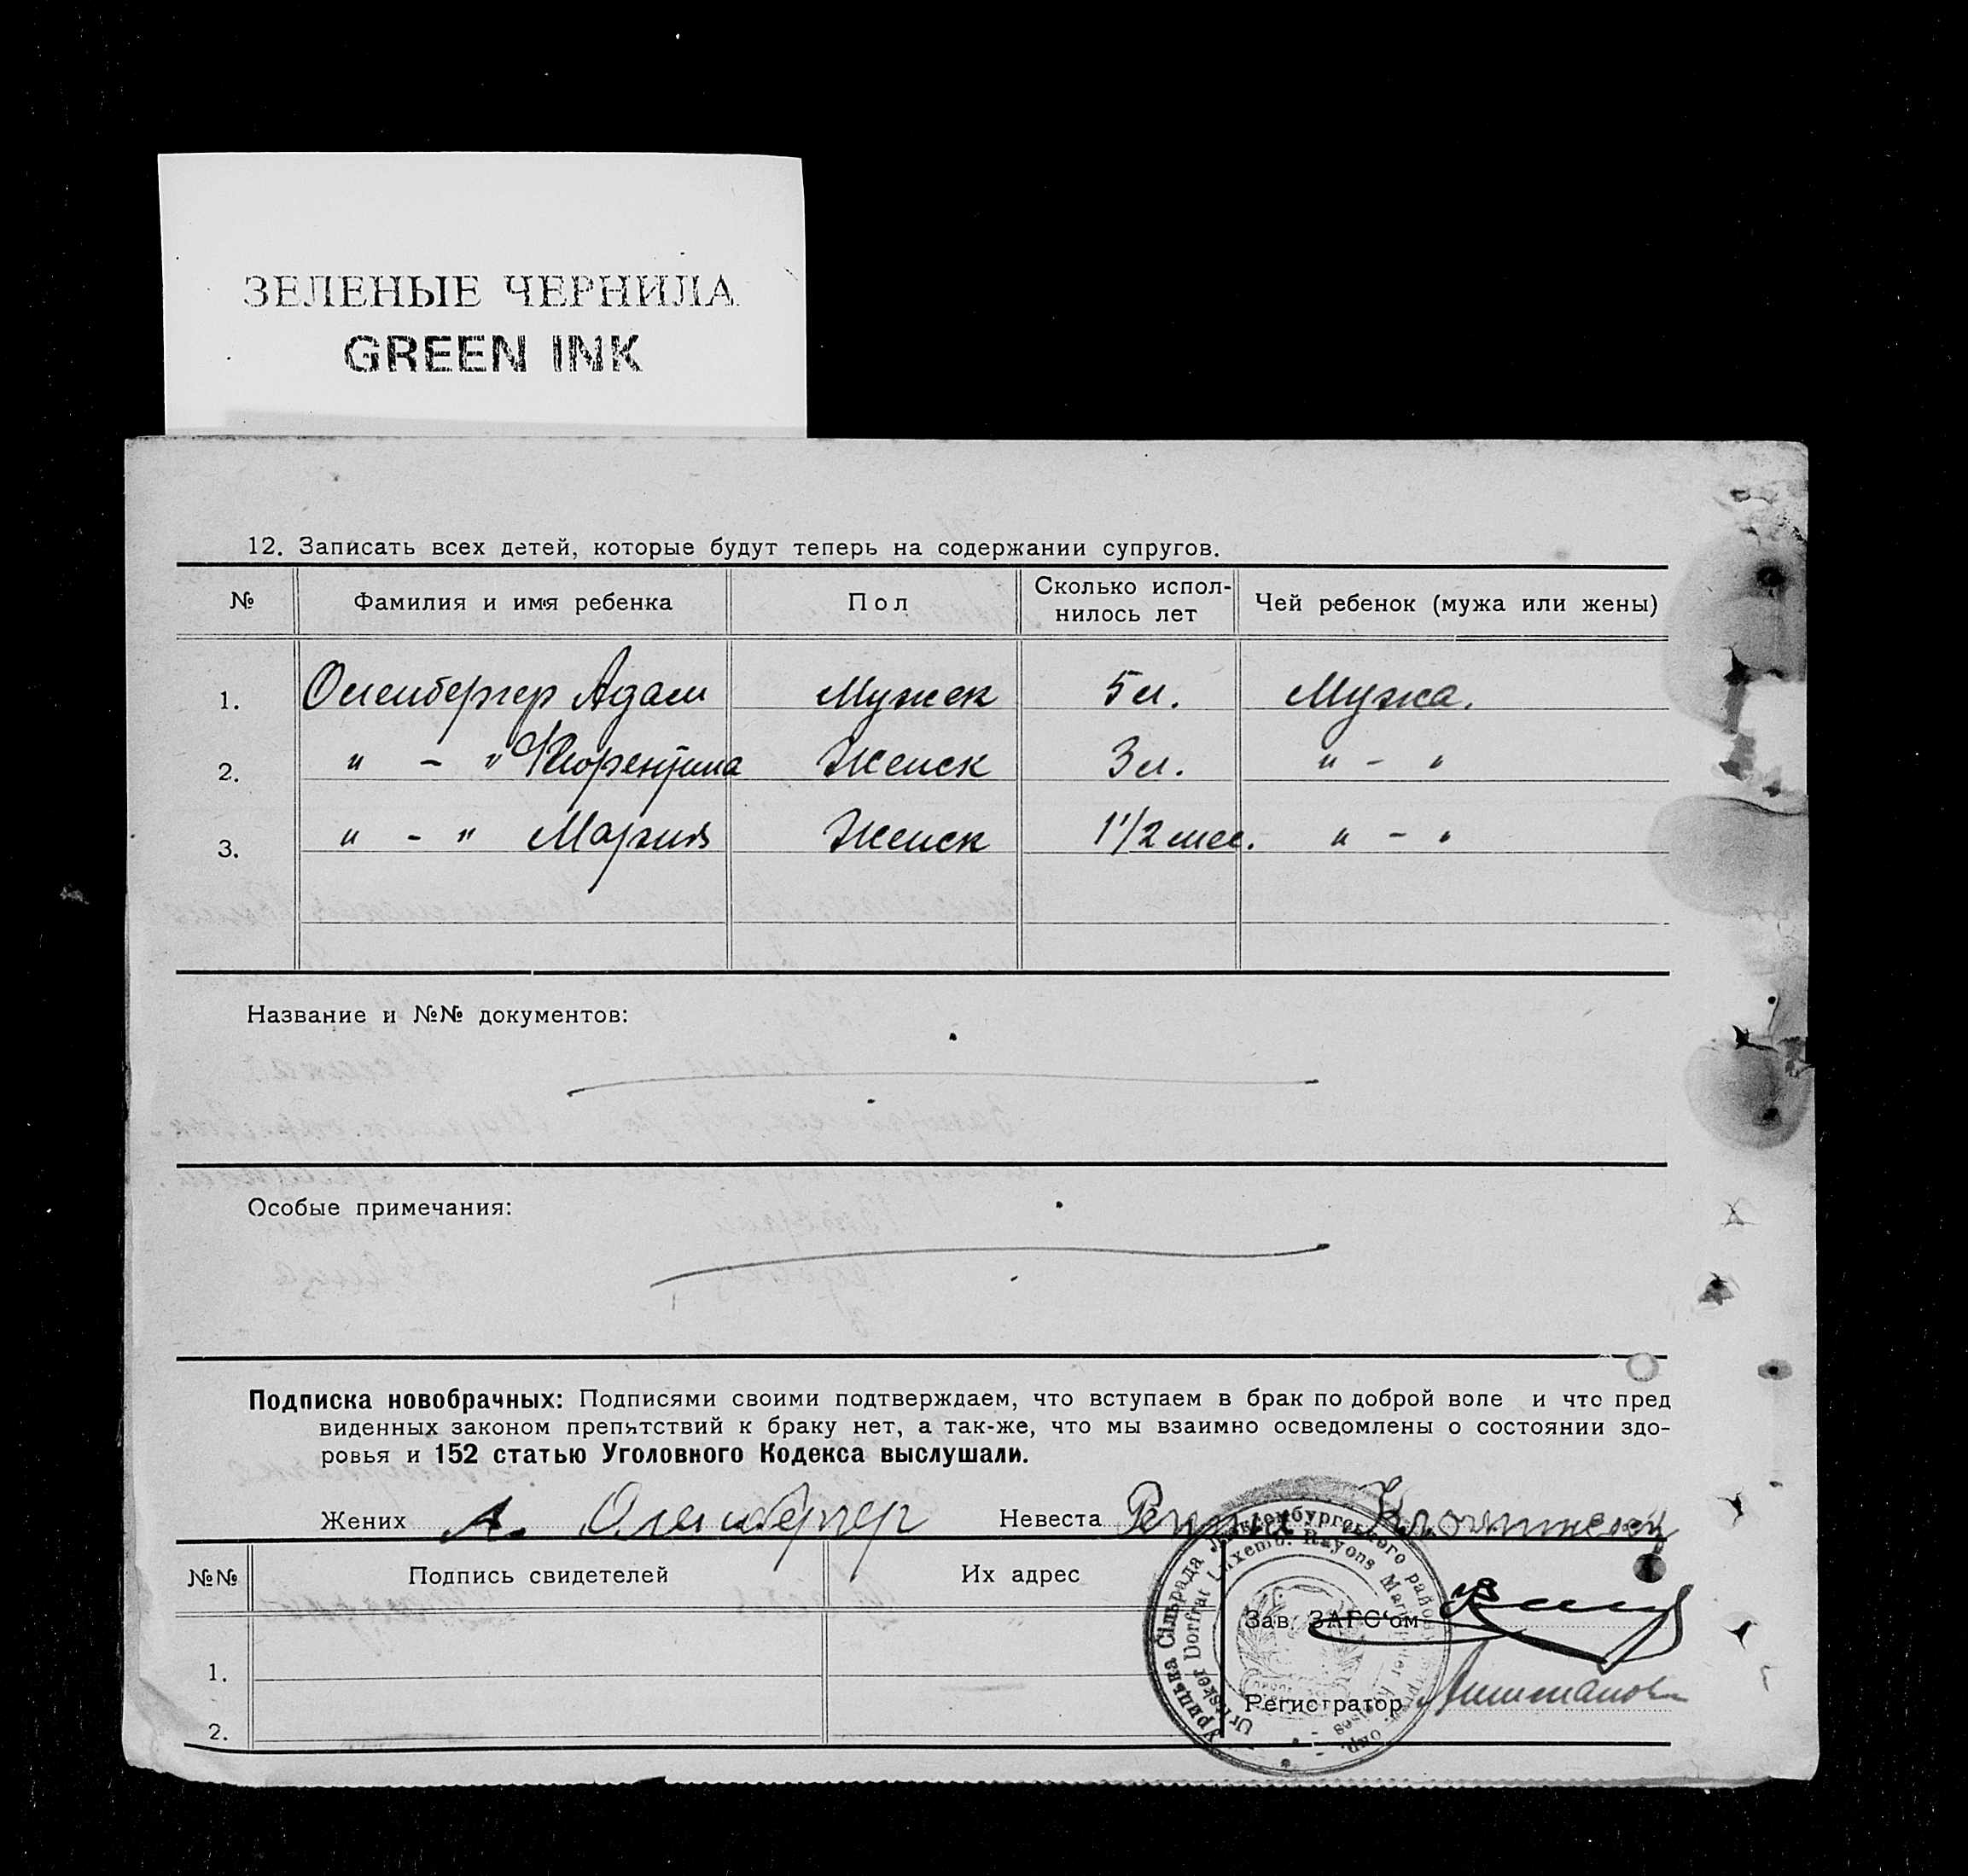 ЗЕЛЕНЫЕ ЧЕРНИЛА
GREEN INK
12. Записать всех детей, которые будут теперь на содержании супругов.
№ Фамилия и имя ребенка Пол Сколько испол-нилось лет Чей ребенок (мужа или жены)
1. Оленбергер Адам Мужск 5 л. Мужа.
2. " - " Флорентина Женск 3 л. " - "
3. " - " Мария Женск 1 1/2 мес. " - "
Название и №№ документов:
Особые примечания:
Подписка новобрачных: Подписями своими подтверждаем, что вступаем в брак по доброй воле и что пред
виденных законом препятствий к браку нет, а так-же, что мы взаимно осведомлены о состоянии здо-
ровья и 152 статью Уголовного Кодекса выслушали.
Жених А. Оленбергер Невеста
№№ Подпись свидетелей Их адрес
Зав. ЗАГС'ом
1.
Регистратор
2.
Урицька Сільрада Люксембургського району
Dorfrat Luxemb. Rayons